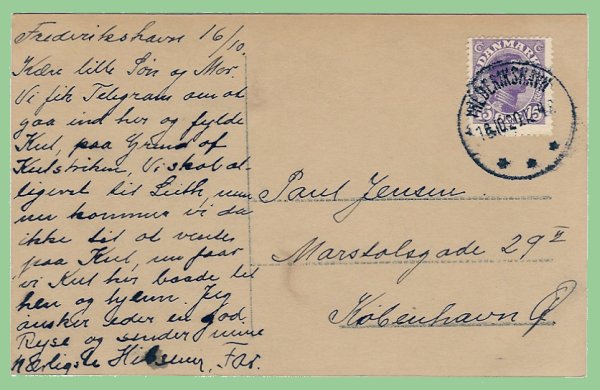 Frederikshavn 16/10.
Kære lille Søn og Mor.
Vi fik Telegram om at
gaa ind her og fylde
Kul, paa Grund af
Kulstriken, Vi skal al-
ligevel til Leith, men
nu kommer vi da
ikke til at vente
paa Kul, nu faar
vi Kul her baade til
hen og hjem. Jeg
ønsker eder en god
Rejse og sender mine
kærligste Hilsener, Far.
DANMARK
15
FREDERIKSHAVN
16.10.20.
Paul Jensen
Marstalsgade 29 II
København Ø